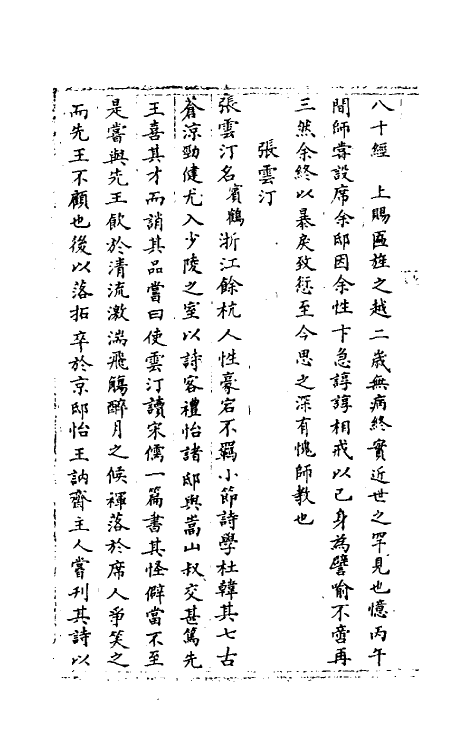 八十經　上賜區旌之越二歲無病終實近世之罕見也憶丙午
間師嘗設席余邸因余性卞急諄諄相戒以已身為譬喻不啻再
三然余終以暴戾致愆至今思之深有愧師教也
張雲汀
張雲汀名賓鶴浙江餘杭人性豪宕不羈小節詩學杜韓其七古
蒼涼勁健尤入少陵之室以詩客禮怡諸邸與嵩山叔交甚篤先
王喜其才而誚其品嘗曰使雲汀讀宋儒一篇書其怪僻當不至
是嘗與先王飲於清流激湍飛觴醉月之候褌落於席人爭笑之
而先王不顧也後以落拓卒於京邸怡王訥齋主人嘗刊其詩以